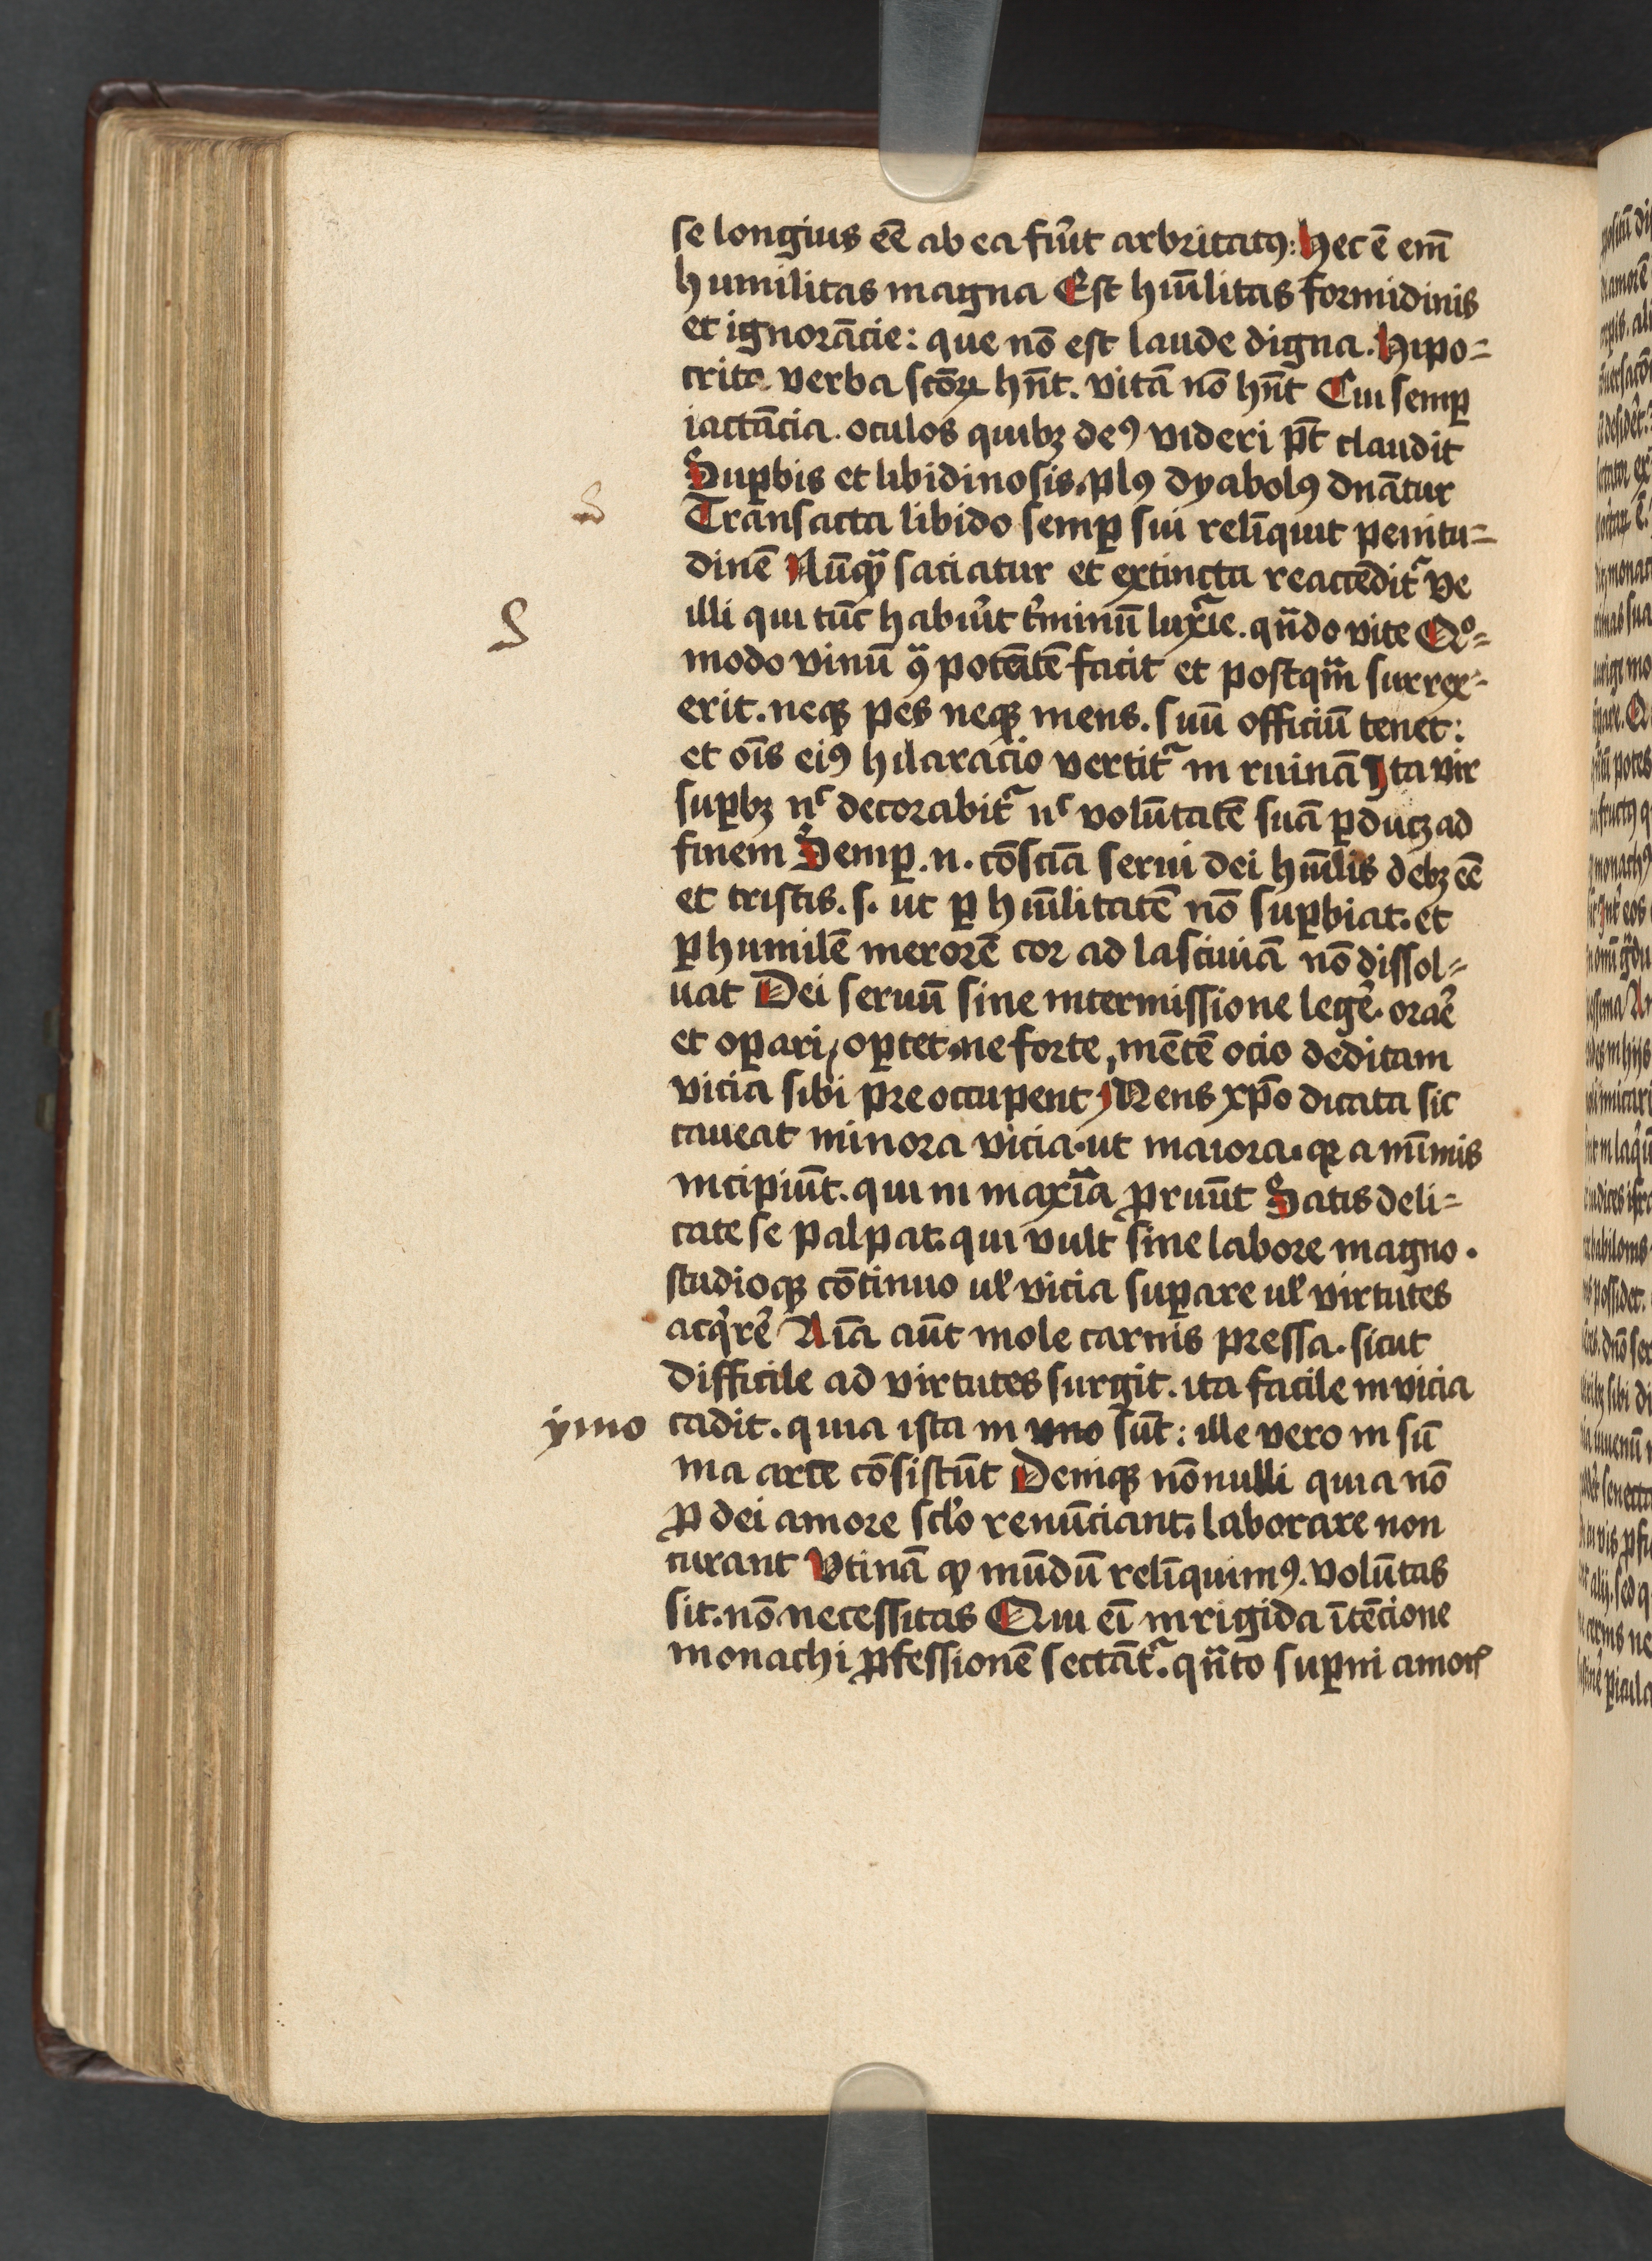 se longius eē ab ea fiūt arbritatꝰ: Hec ē em̄
humilitas magna Est huīlitas formidinis
et ignorācie: que nō est laude digna. Hipo=
crite verba scōꝝ hn̄t. vitā nō hn̄t Cui semꝑ
iactācia. oculos quibꝫ deꝰ videri pt̄ claudit
Suꝑbis et libidinosis. plꝰ dyabolꝰ dn̄atur
Transacta libido semꝑ sui relīquit penitu=
dinē Nūꝙͣ saciatur et extincta reaccēditᷓ ve
illi qui tūc habiūt t̓minū luxᷓie. qn̄do vite Qͦ=
modo vinū ꝯͣ potētē facit et postqͣm̄ surrex=
erit. neqꝫ pes neqꝫ mens. suū officiū tenet:
et oīs eiꝰ hilaracio vertitᷓ in ruinā Ita vir
suꝑbꝫ nᶜ decorabitᷓ nᶜ volūtatē suā ꝑducꝫ ad
finem Semꝑ .n. cōsciā serui dei huīlis debꝫ eē
et tristis. s. ut ꝑ huīlitatē nō suꝑbiat. et
ꝑ humilē merorē cor ad lasciuiā nō dissol=
uat Dei seruū sine intermissione legē. orāe
et oꝑari, oꝑtet. ne forte, mētē ocio deditam
vicia sibi preoccupent Mens xp̄o dicata sic
caueat minora vicia. ut maiora. qꝛ a mīmis
incipiūt. qui in maxīa ꝓruūt Satis deli=
cate se palpat. qui vult sine labore magno.
studioqꝫ cōtinuo uꝉ vicia suꝑare uꝉ virtutes
acqͥrē Aīa aūt mole carnis pressa. sicut
difficile ad virtutes surgit. ita facile in vicia
ÿmo cadit. quia ista in vno sūt: ille vero in sū
ma arce cōsistūt Deniqꝫ nōnulli quia nō
ꝓ dei amore sclo̓ renūciant. laborare non
curant Vtinā ꝙ mūdū relīquimꝰ. volūtas
sit. nō necessitas Qui eī in rigida ītēcione
monachi ꝓfessionē sectātᷓ. qn̄to suꝑni amorꝭ